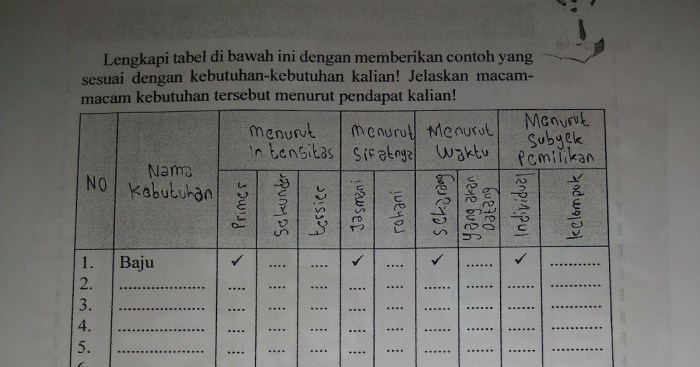 Lengkapi tabel di bawah ini dengan memberikan contoh yang
sesuai dengan kebutuhan-kebutuhan kalian! Jelaskan macam-
macam kebutuhan tersebut menurut pendapat kalian!
NO
Nama
Kebutuhan
Menurut
intensitas
Menurut
Sifatnya
Menurut
Waktu
Menurut
Subyek
Pemilikan
Primer
Sekunder
tersier
Jasmani
rohani
Sekarang
Yang akan
Datang
Individual
Kelompok
1. Baju ✓ .... .... ✓ .... ✓ ...... ✓ ............
2. .................... .... .... .... .... .... .... ...... ...... ............
3. .................... .... .... .... .... .... .... ...... ...... ............
4. .................... .... .... .... .... .... .... ...... ...... ............
5. .................... .... .... .... .... .... .... ...... ...... ............